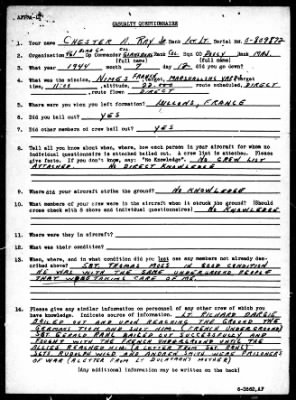 CASUALTY QUESTIONNAIRE
1. Your name CHESTER A. RAY Jr Rank 1st Lt. Serial No.
2. Organization 461 Bomb Gp Commander Rank Col. Sqn CO Rank MAJ.
(full name) (full name)
3. What year 1944 month 7 day 12 did you go down?
4. What was the mission, NIMES FRANCE, MARSHALLING YARDS, target,
time, 11:00, altitude, 22,000 route scheduled, DIRECT,
route flown DIRECT
5. Where were you when you left formation? FRANCE
6. Did you bail out? YES
7. Did other members of crew bail out? YES
8. Tell all you know about when, where, how each person in your aircraft for whom no
individual questionnaire is attached bailed out. A crew list is attached. Please
give facts. If you don't know, say: "No Knowledge". NO CREW LIST
ATTACHED. NO DIRECT KNOWLEDGE
9. Where did your aircraft strike the ground? NO KNOWLEDGE
10. What members of your crew were in the aircraft when it struck the ground? (Should
cross check with 8 above and individual questionnaires) NO KNOWLEDGE
11. Where were they in aircraft?
12. What was their condition?
13. When, where, and in what condition did you last see any members not already des-
cribed above? SGT THOMAS MOSS IN GOOD CONDITION
HE WAS WITH THE SAME UNDERGROUND PEOPLE
THAT WERE TAKING CARE OF ME.
14. Please give any similar information on personnel of any other crew of which you
have knowledge. Indicate source of information. LT RICHARD
BAILED OUT AND UPON REACHING THE GROUND THE
GERMANS TOOK AND SHOT HIM (FRENCH UNDERGROUND)
SGT GERALD BAILED OUT SUCCESSFULLY AND
FOUGHT WITH THE FRENCH UNDERGROUND UNTIL THE
ALLIES REACHED HIM (A LETTER FROM SGT.
SGTS RUDOLPH WILD AND ANDREW SMITH WERE PRISONERS
OF WAR (A LETTER FROM LT MOTHER)
(Any additional information may be written on the back)